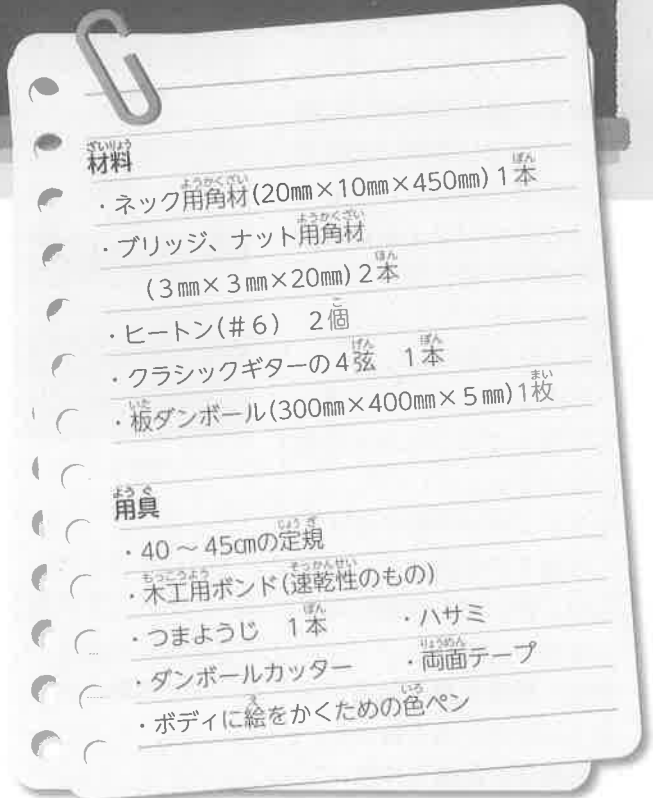 材料
・ネック用角材(20㎜×10㎜×450㎜)1本
・ブリッジ、ナット用角材
(3㎜×3㎜×20㎜)2本
・ヒートン(#6) 2個
・クラシックギターの4弦 1本
・板ダンボール(300㎜×400㎜×5㎜)1枚
用具
・40～45㎝の定規
・木工用ボンド(速乾性のもの)
・つまようじ 1本 ・ハサミ
・ダンボールカッター ・両面テープ
・ボディに絵をかくための色ペン